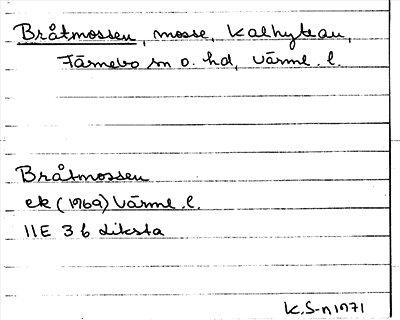 Bråtmossen, mosse, Kalhyttan,
Färnebo sn o. hd, Värml. l.
Bråtmossen
ek (1969) Värml. l.
11E 3b Liksta
K.S-n 1971